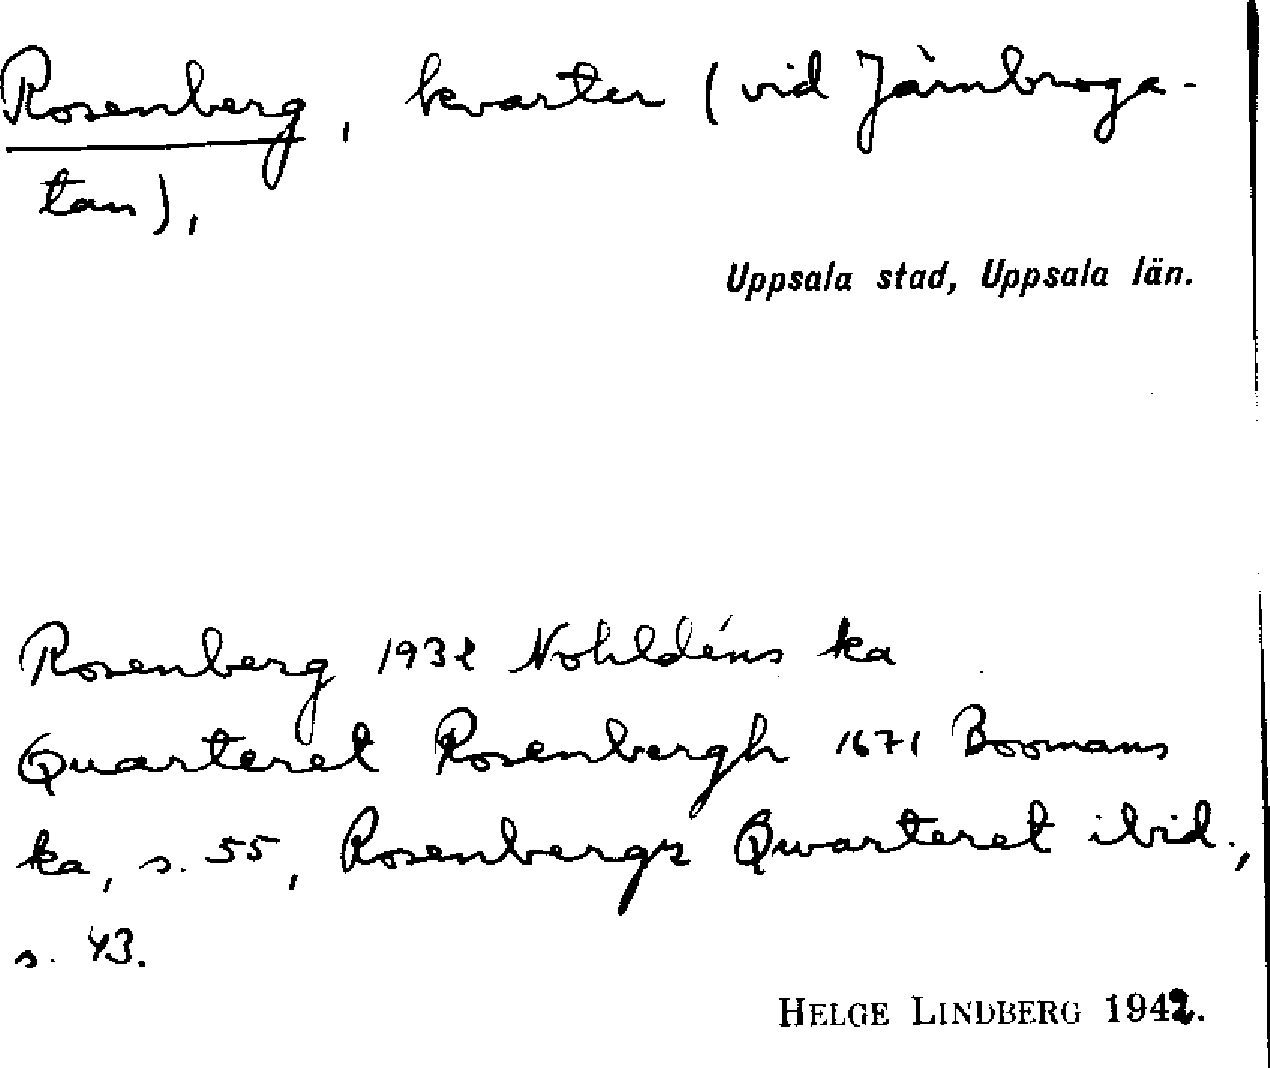 Rosenberg, kvarter (vid Järnbroga-
tan),
Uppsala stad, Uppsala län.
Rosenberg 1932 Nohldéns ka
Quarteret Rosenbergh 1671 Boomans
ka, s. 55, Rosenbergz Qwarteret ibid.,
s. 43.
HELGE LINDBERG 1942.